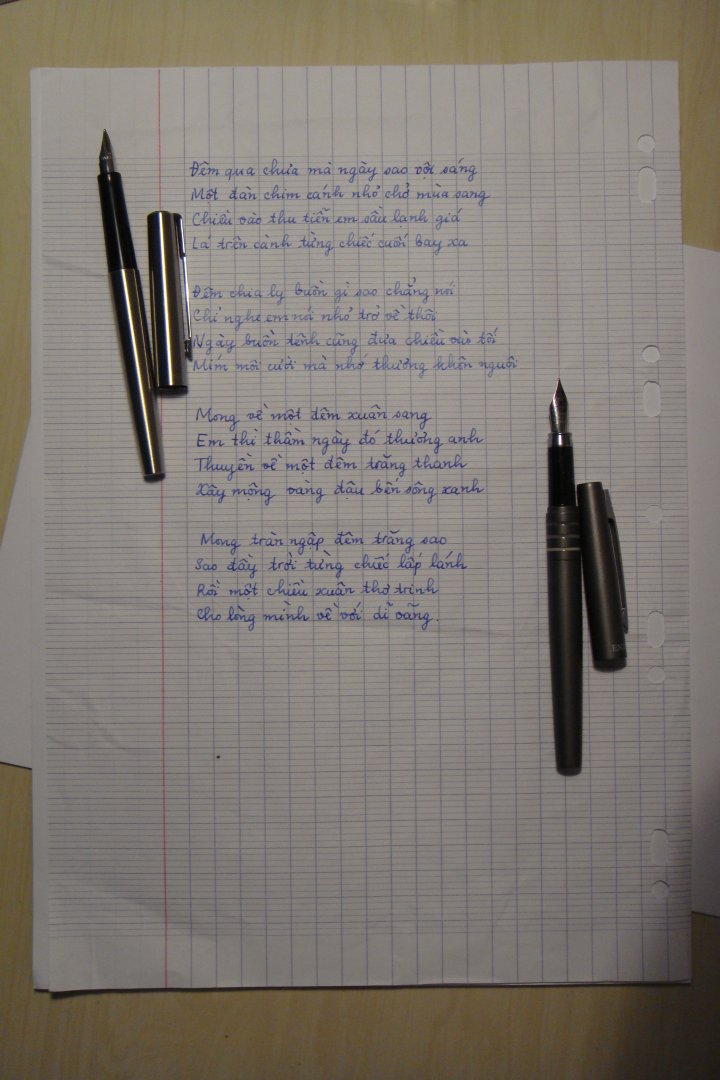 Đêm qua chưa mà ngày sao vội sáng
Một đàn chim cánh nhỏ chở mùa sang
Chiều vào thu tiễn em sầu lạnh giá
Lá trên cành từng chiếc cuối bay xa
Đêm chia ly buồn gì sao chẳng nói
Chỉ nghe em nói nhỏ trở về thôi
Ngày buồn tênh cũng đưa chiều vào tối
Mím môi cười mà nhớ thương khôn nguôi
Mong về một đêm xuân sang
Em thì thầm ngày đó thương anh
Thuyền về một đêm trăng thanh
Xây mộng vàng đậu bến sông xanh
Mong tràn ngập đêm trăng sao
Sao đầy trời từng chiếc lấp lánh
Rồi một chiều xuân thơ trinh
Cho lòng mình về với dĩ vãng.